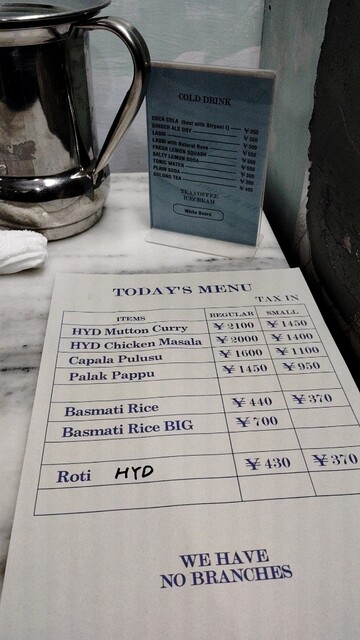 COLD DRINK
COCA COLA (Best with Biryani !) ¥
GINGER ALE DRY ¥
LASSI ¥
LASSI with Natural Rose ¥
FRESH LEMON SQUASH ¥
SALTY LEMON SODA ¥
TONIC WATER ¥
PLAIN SODA ¥
OOLONG TEA ¥
TEA/COFFEE
ICECREAM
White Board
TODAY'S MENU
TAX IN
ITEMS REGULAR SMALL
HYD Mutton Curry ¥2100 ¥1450
HYD Chicken Masala ¥2000 ¥1400
Capala Pulusu ¥1600 ¥1100
Palak Pappu ¥1450 ¥950
Basmati Rice ¥440 ¥370
Basmati Rice BIG ¥700
Roti HYD ¥430 ¥370
WE HAVE
NO BRANCHES